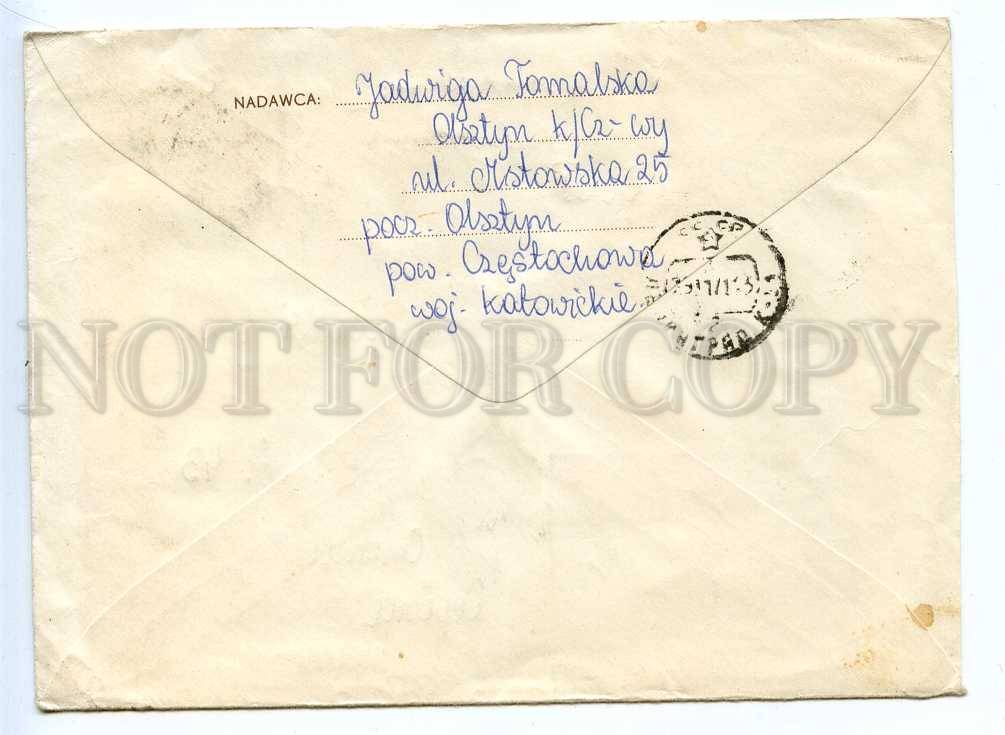 NADAWCA: Jadwiga Tomalska
Olsztyn k/Cz-wy
ul. Mstowska 25
pocz. Olsztyn
pow. Częstochowa
woj. katowickie
СССР
NOT FOR COPY